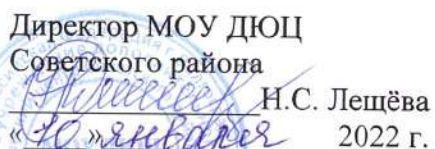 Директор МОУ ДЮЦ
Советского района
Н.С. Лещёва
«10» января 2022 г.